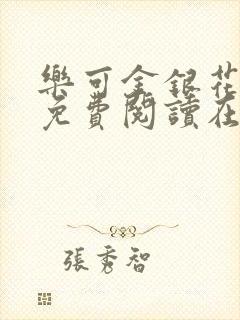 樂可金銀花
免費閱讀在
張秀智